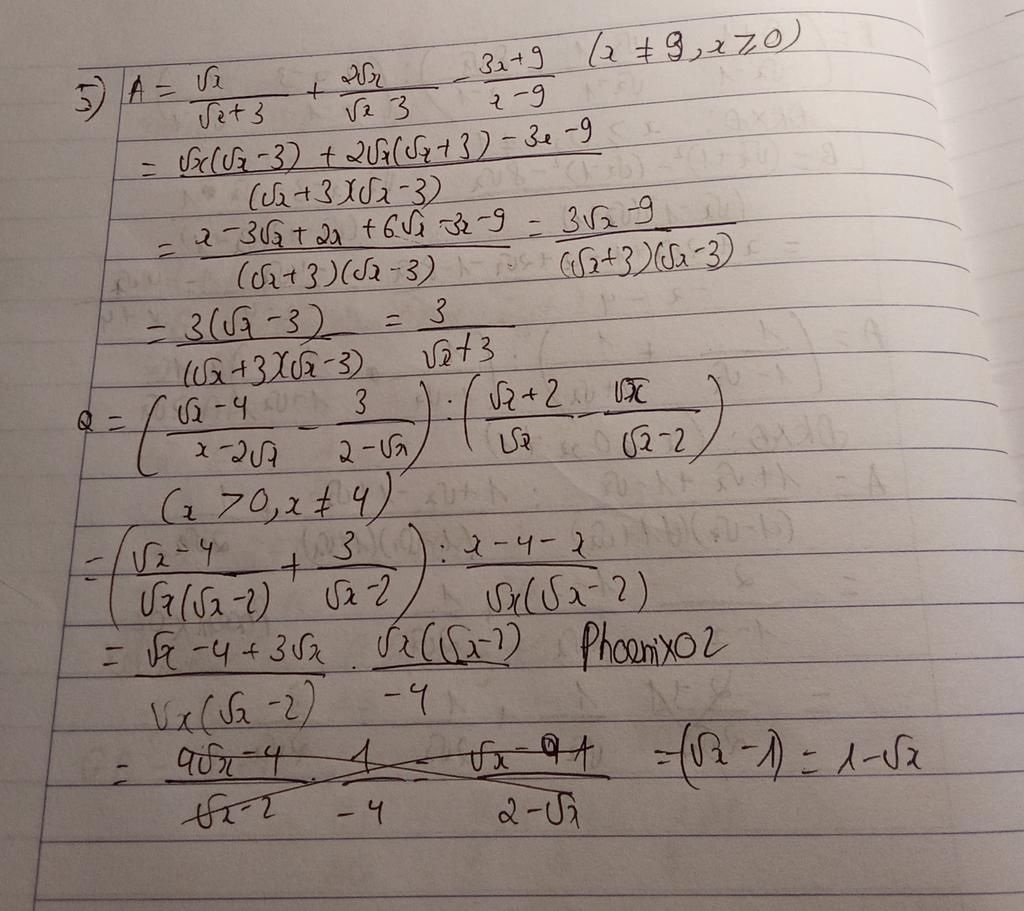 5) A = √x/(√x+3) + 2√x/(√x-3) - (3x+9)/(x-9) (x ≠ 9, x ≥ 0)
= (√x(√x-3) + 2√x(√x+3) - 3x - 9)/((√x+3)(√x-3))
= (x - 3√x + 2x + 6√x - 3x - 9)/((√x+3)(√x-3)) = (3√x - 9)/((√x+3)(√x-3))
= 3(√x-3)/((√x+3)(√x-3)) = 3/(√x+3)
Q = ((√x-4)/(x-2√x) - 3/(2-√x)) : ((√x+2)/√x - √x/(√x-2))
(x > 0, x ≠ 4)
= ((√x-4)/(√x(√x-2)) + 3/(√x-2)) : (x-4-x)/(√x(√x-2))
= (√x-4+3√x)/(√x(√x-2)) . √x(√x-2)/-4 Phoenix02
= =(√x-1) = 1-√x